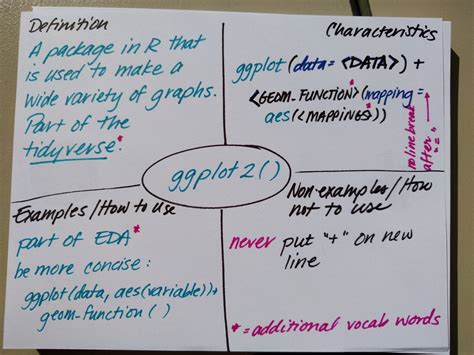 Definition
A package in R that
is used to make a
wide variety of graphs.
Part of the
tidyverse.*
Characteristics
ggplot(data = <DATA>) +
<GEOM-FUNCTION>*(mapping =
aes(<MAPPINGS>*))
no line break
after "="
ggplot2()
Examples/How to Use
part of EDA*
be more concise:
ggplot(data, aes(variable))+
geom-function()
Non-examples/How
not to use
never put "+" on new
line
* = additional vocab words